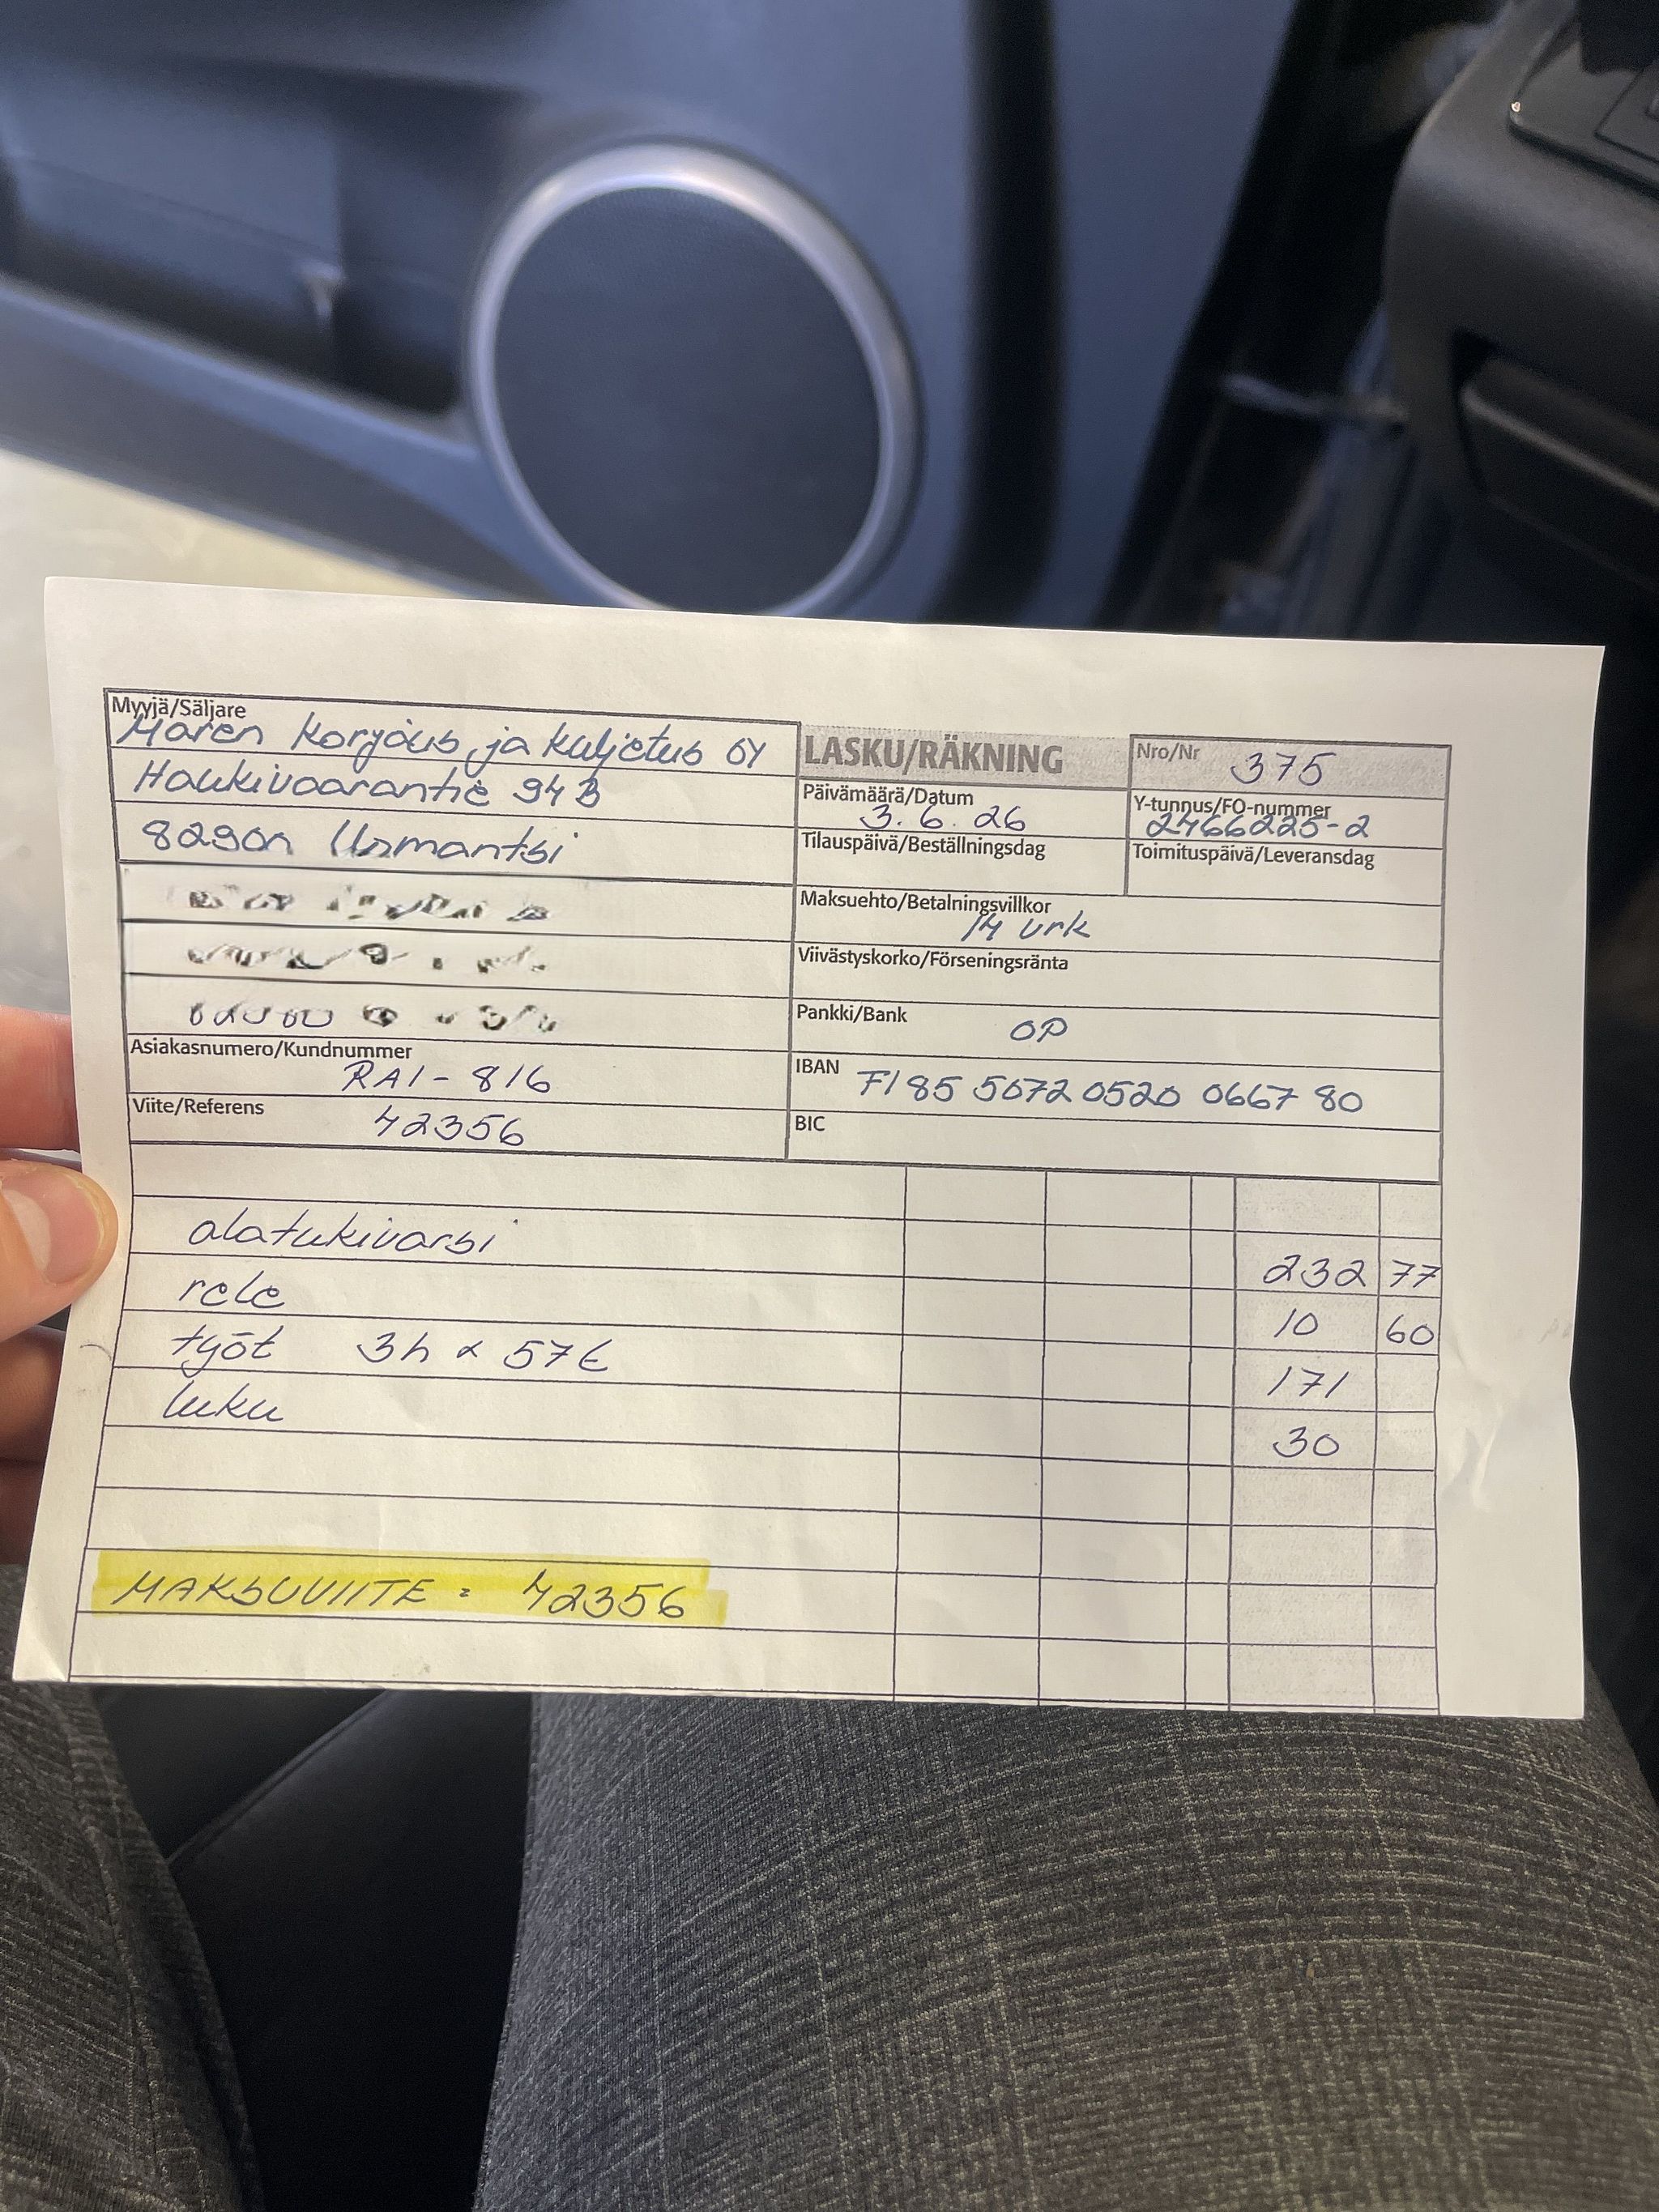 Myyjä/Säljare
Maren Korjaus ja kuljetus OY
Haukivaarantie 94 B
82900 Ilomantsi
LASKU/RÄKNING
Nro/Nr 375
Päivämäärä/Datum
3.6.26
Y-tunnus/FO-nummer
2466225-2
Tilauspäivä/Beställningsdag
Toimituspäivä/Leveransdag
Maksuehto/Betalningsvillkor
14 vrk
Viivästyskorko/Förseningsränta
Pankki/Bank OP
Asiakasnumero/Kundnummer
RAI-816
IBAN FI85 5072 0520 0667 80
Viite/Referens 42356
BIC
alatukivarsi 232 77
rele 10 60
työt 3h x 57€ 171
luku 30
MAKSUVIITE: 42356